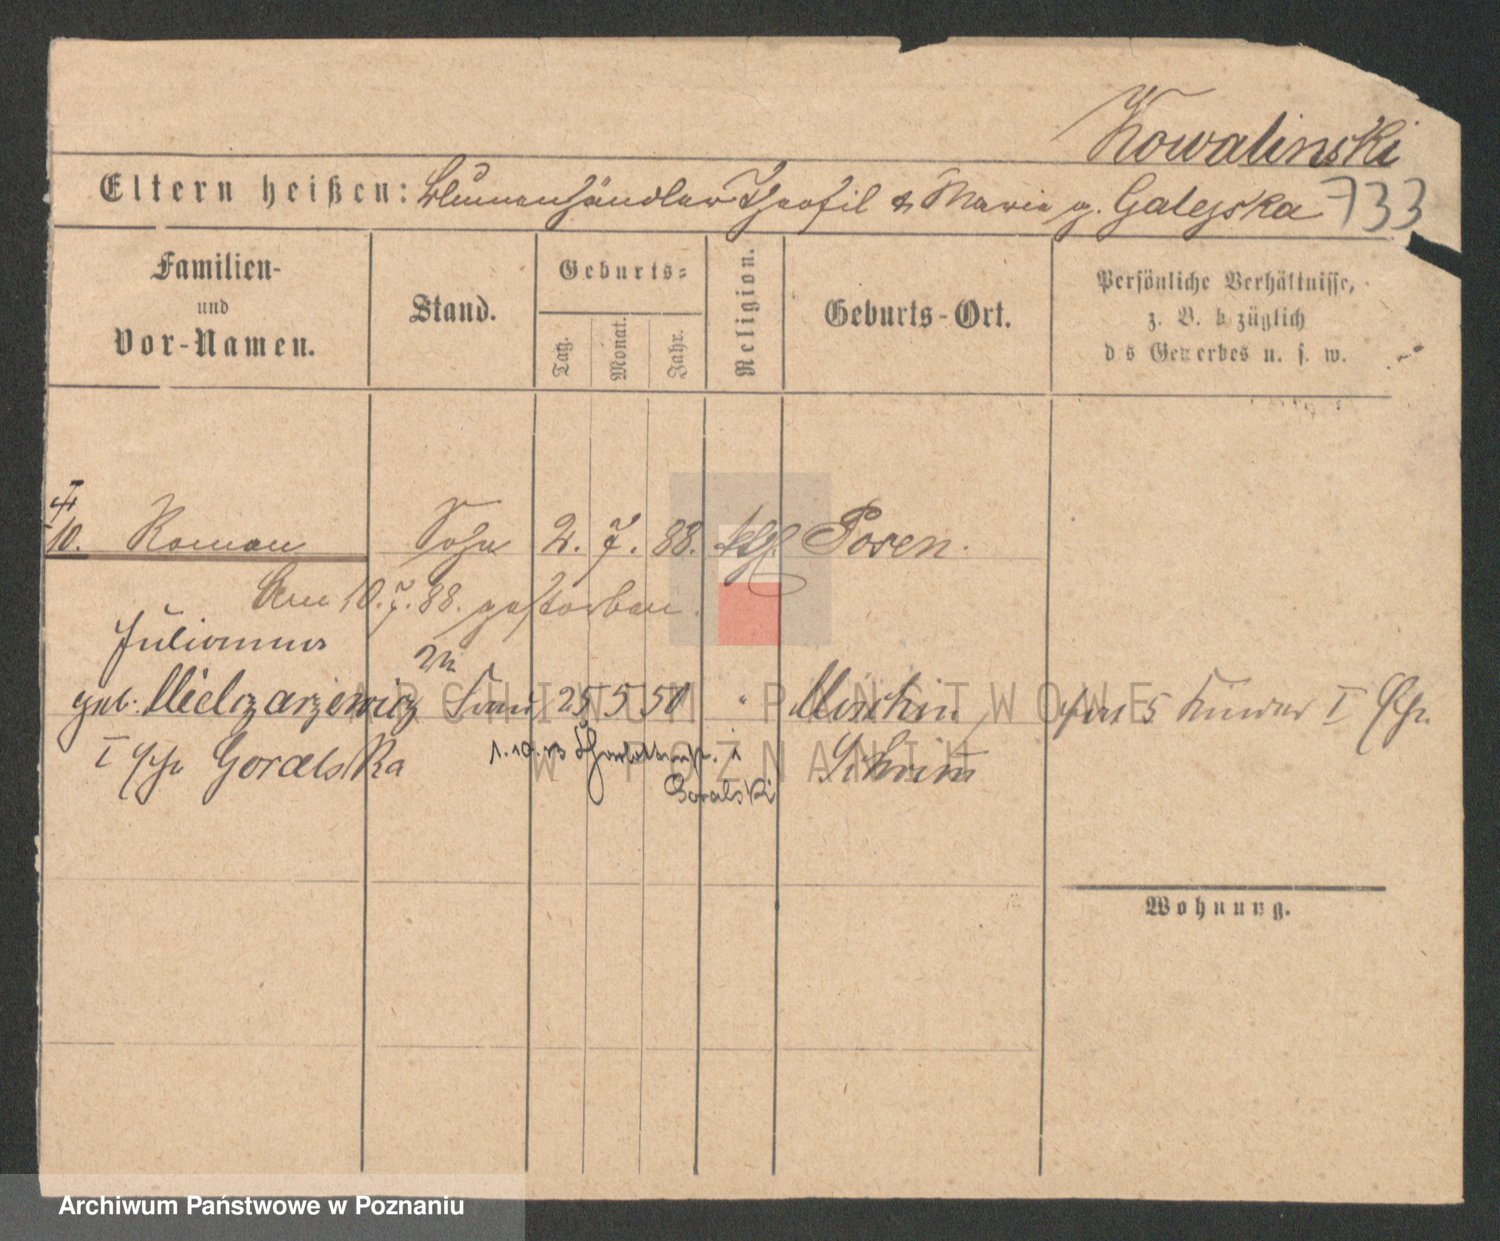 Kowalinski
Eltern heißen: Blumenhändler Theofil & Marie g. Galejska 733
Familien-
und
Vor-Namen.
Stand.
Geburts-
Tag.
Monat.
Jahr.
Religion.
Geburts-Ort.
Persönliche Verhältnisse,
z. B. bezüglich
des Gewerbes u. s. w.
10. Roman Sohn 2. 7. 88. kth Posen.
Am 10. 7. 88. gestorben.
Julianna
geb. Mielczarzewicz Frau 25 5 50 " Moschin 5 Kinder I Ehe
I Ehe Goralska Schrim
1. 10. i
Goralski
Wohnung.
ARCHIWUM PAŃSTWOWE
W POZNANIU
Archiwum Państwowe w Poznaniu